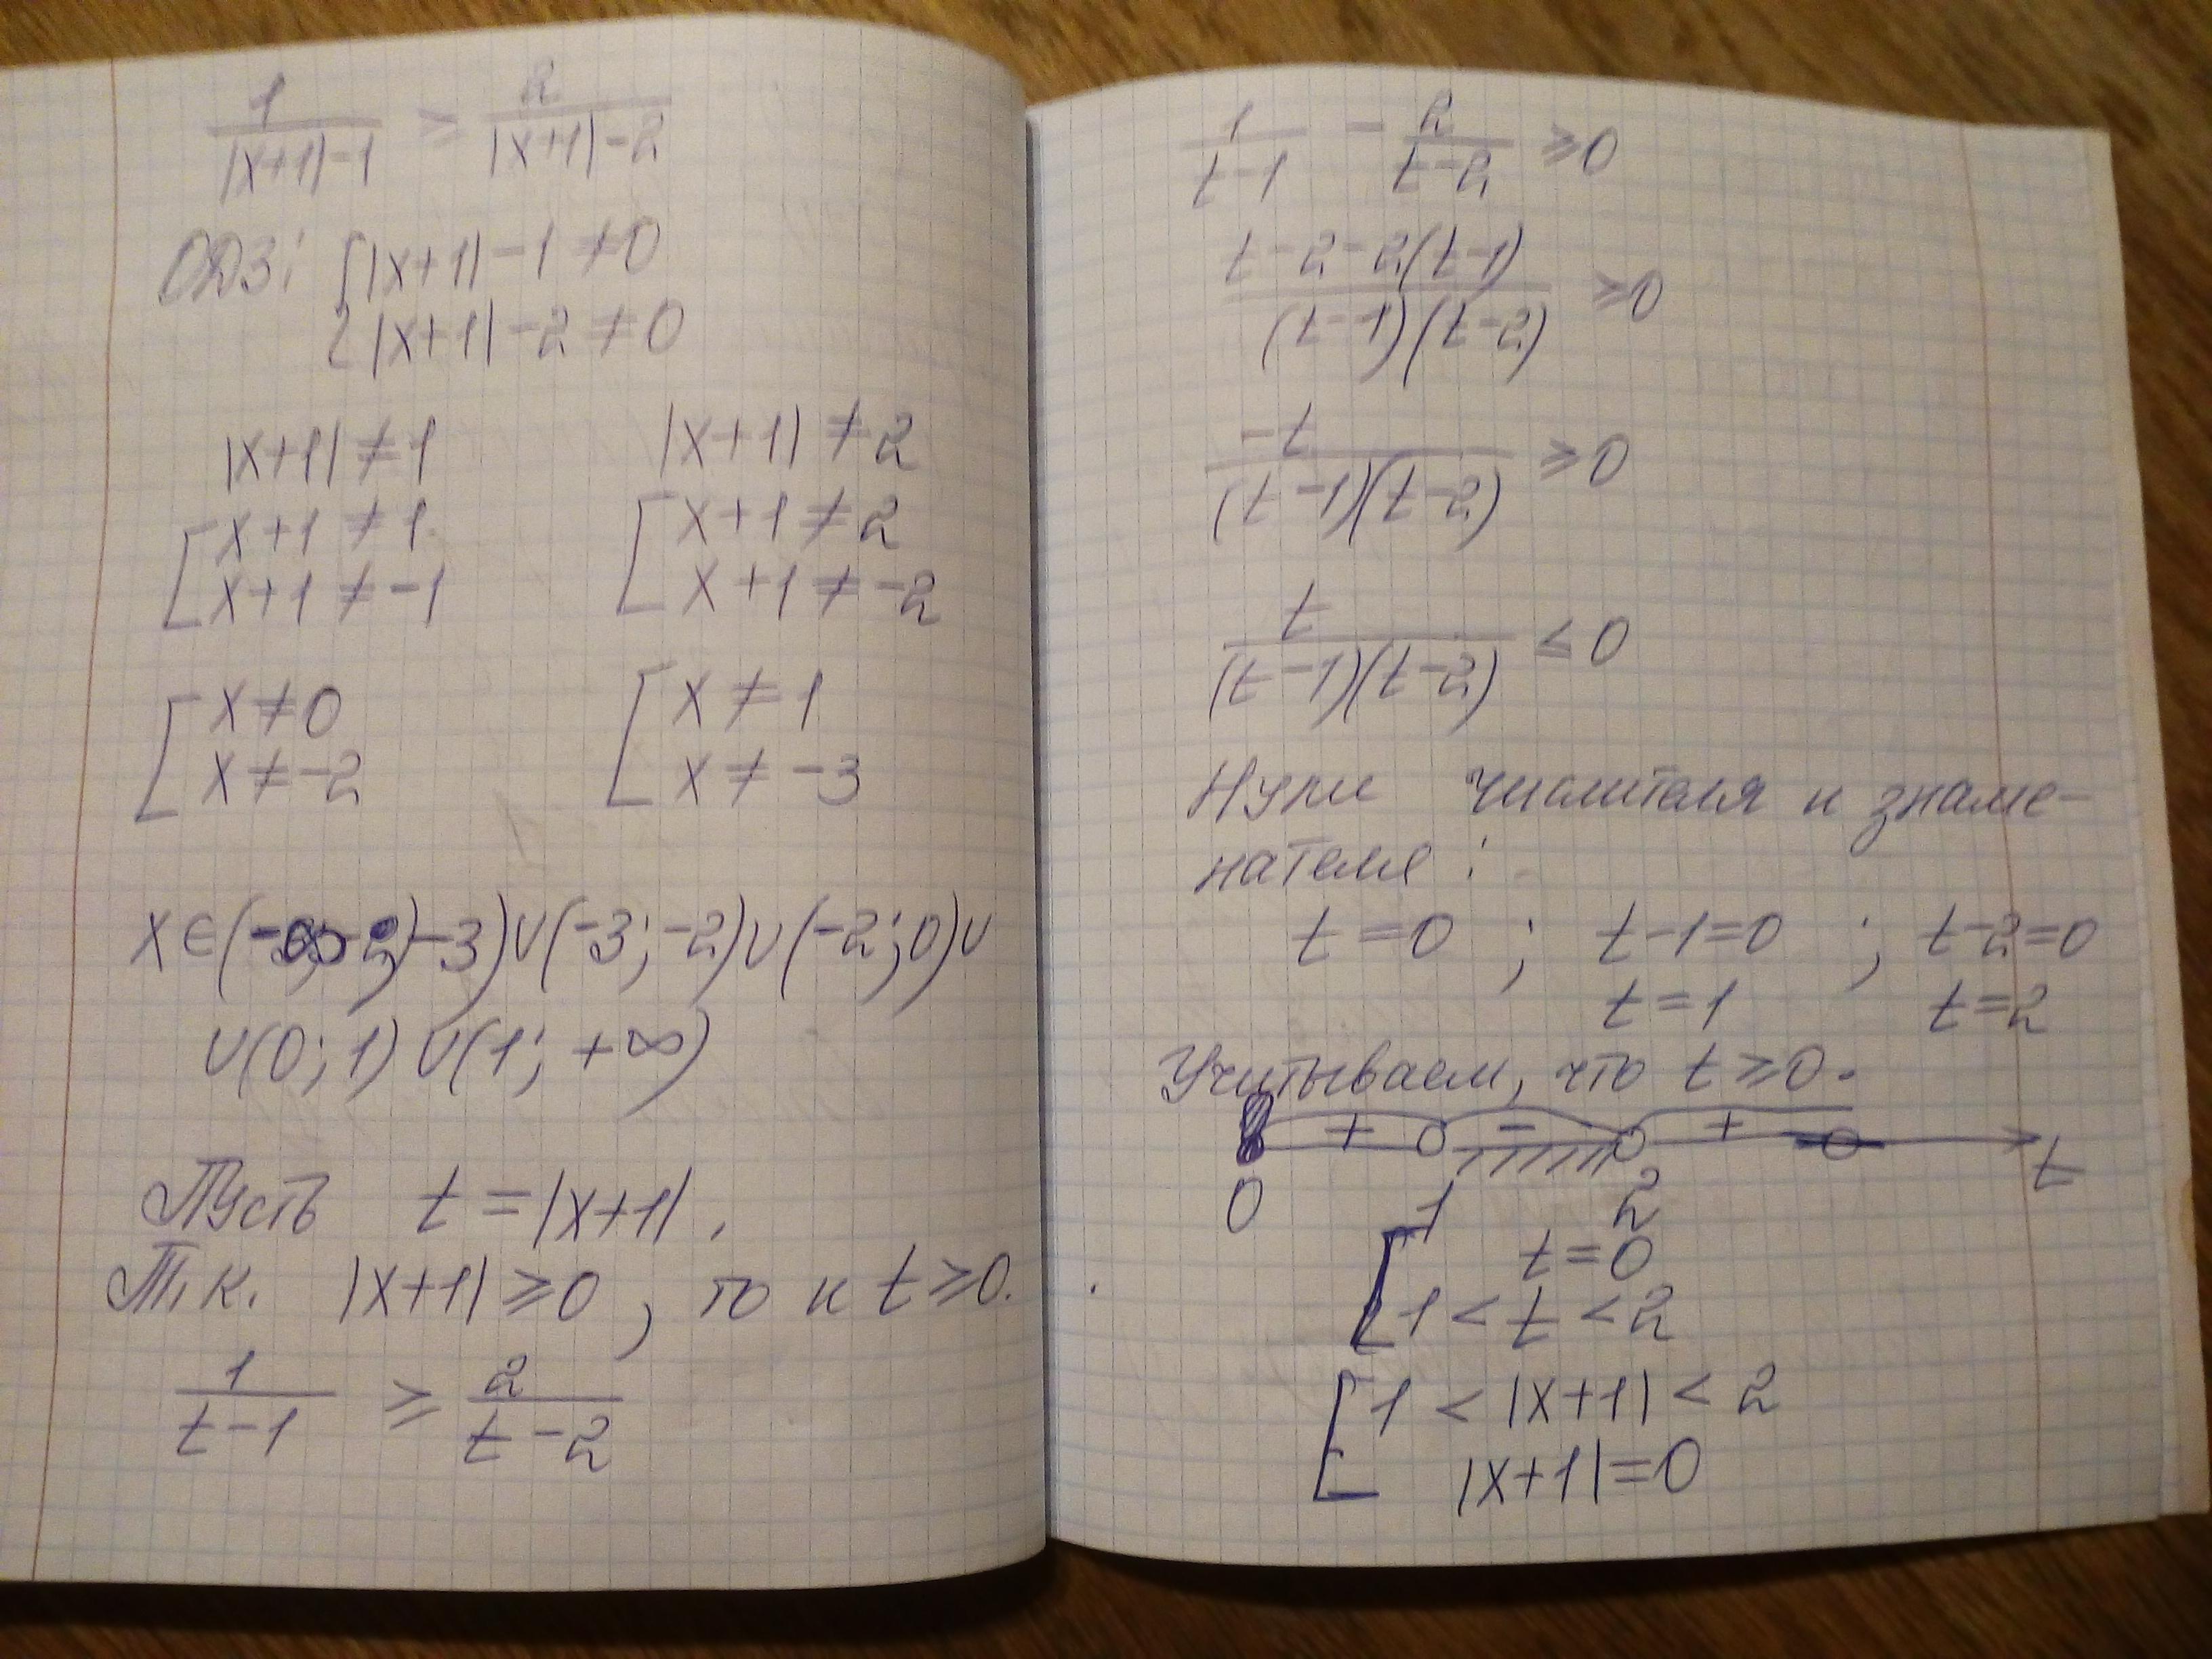 1/(|x+1|-1) ≥ 2/(|x+1|-2)
ОДЗ: {|x+1|-1≠0
{|x+1|-2≠0
|x+1|≠1 |x+1|≠2
[x+1≠1 [x+1≠2
[x+1≠-1 [x+1≠-2
[x≠0 [x≠1
[x≠-2 [x≠-3
x∈(-∞;-3)∪(-3;-2)∪(-2;0)∪
∪(0;1)∪(1;+∞)
Пусть t=|x+1|.
Т.к. |x+1|≥0, то и t≥0.
1/(t-1) ≥ 2/(t-2)
1/(t-1) - 2/(t-2) ≥0
(t-2-2(t-1))/((t-1)(t-2)) ≥0
-t/((t-1)(t-2)) ≥0
t/((t-1)(t-2)) ≤0
Нули числителя и знаме-
нателя:
t=0; t-1=0; t-2=0
t=1 t=2
Учитываем, что t≥0.
+ - + t
0 1 2
[t=0
[1<t<2
[1<|x+1|<2
[|x+1|=0